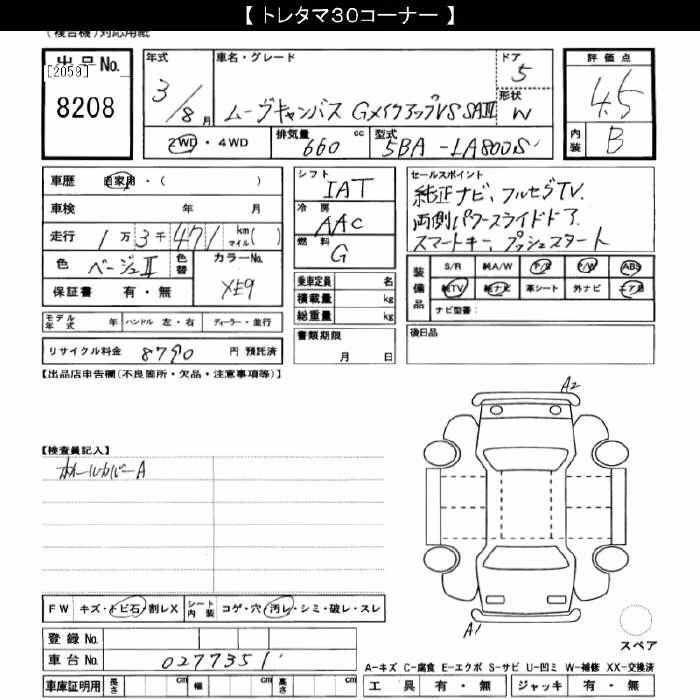 【 トレタマ30コーナー 】
(複合機)対応用紙
出品No. [2059] 8208
年式 3/8月
車名・グレード ムーヴキャンバス GメイクアップVS SAⅢ
ドア 5
形状 W
評価点 4.5
内装 B
2WD・4WD 排気量 660 cc 型式 5BA-LA800S
車歴 自家用・( )
車検 年 月
走行 1万3千471 km マイル( )
色 ベージュⅡ 色替 カラーNo. X19
保証書 有・無
モデル年式 年 ハンドル 左・右 ディーラー・並行
リサイクル料金 8790 円 預託済
シフト IAT
冷房 AAC
燃料 G
乗車定員 名
積載量 kg
総重量 kg
書類期限
月 日
セールスポイント
純正ナビ、フルセグTV.
両側パワースライドドア.
スマートキー、プッシュスタート
装備品 S/R 純A/W P/S P/W ABS
純TV 純ナビ 革シート 外ナビ エアB
ナビ型番:
後日品
【出品店申告欄(不良箇所・欠品・注意事項等)】
【検査員記入】
ホイールカバーA
A2
A1
スペア
FW キズ・トビ石・割レX シート内装 コゲ・穴・汚レ・シミ・破レ・スレ
登録No.
車台No. 0277351
車庫証明用 長さ cm 幅 cm 高さ cm
A-キズ C-腐食 E-エクボ S-サビ U-凹ミ W-補修 XX-交換済
工具 有・無 ジャッキ 有・無